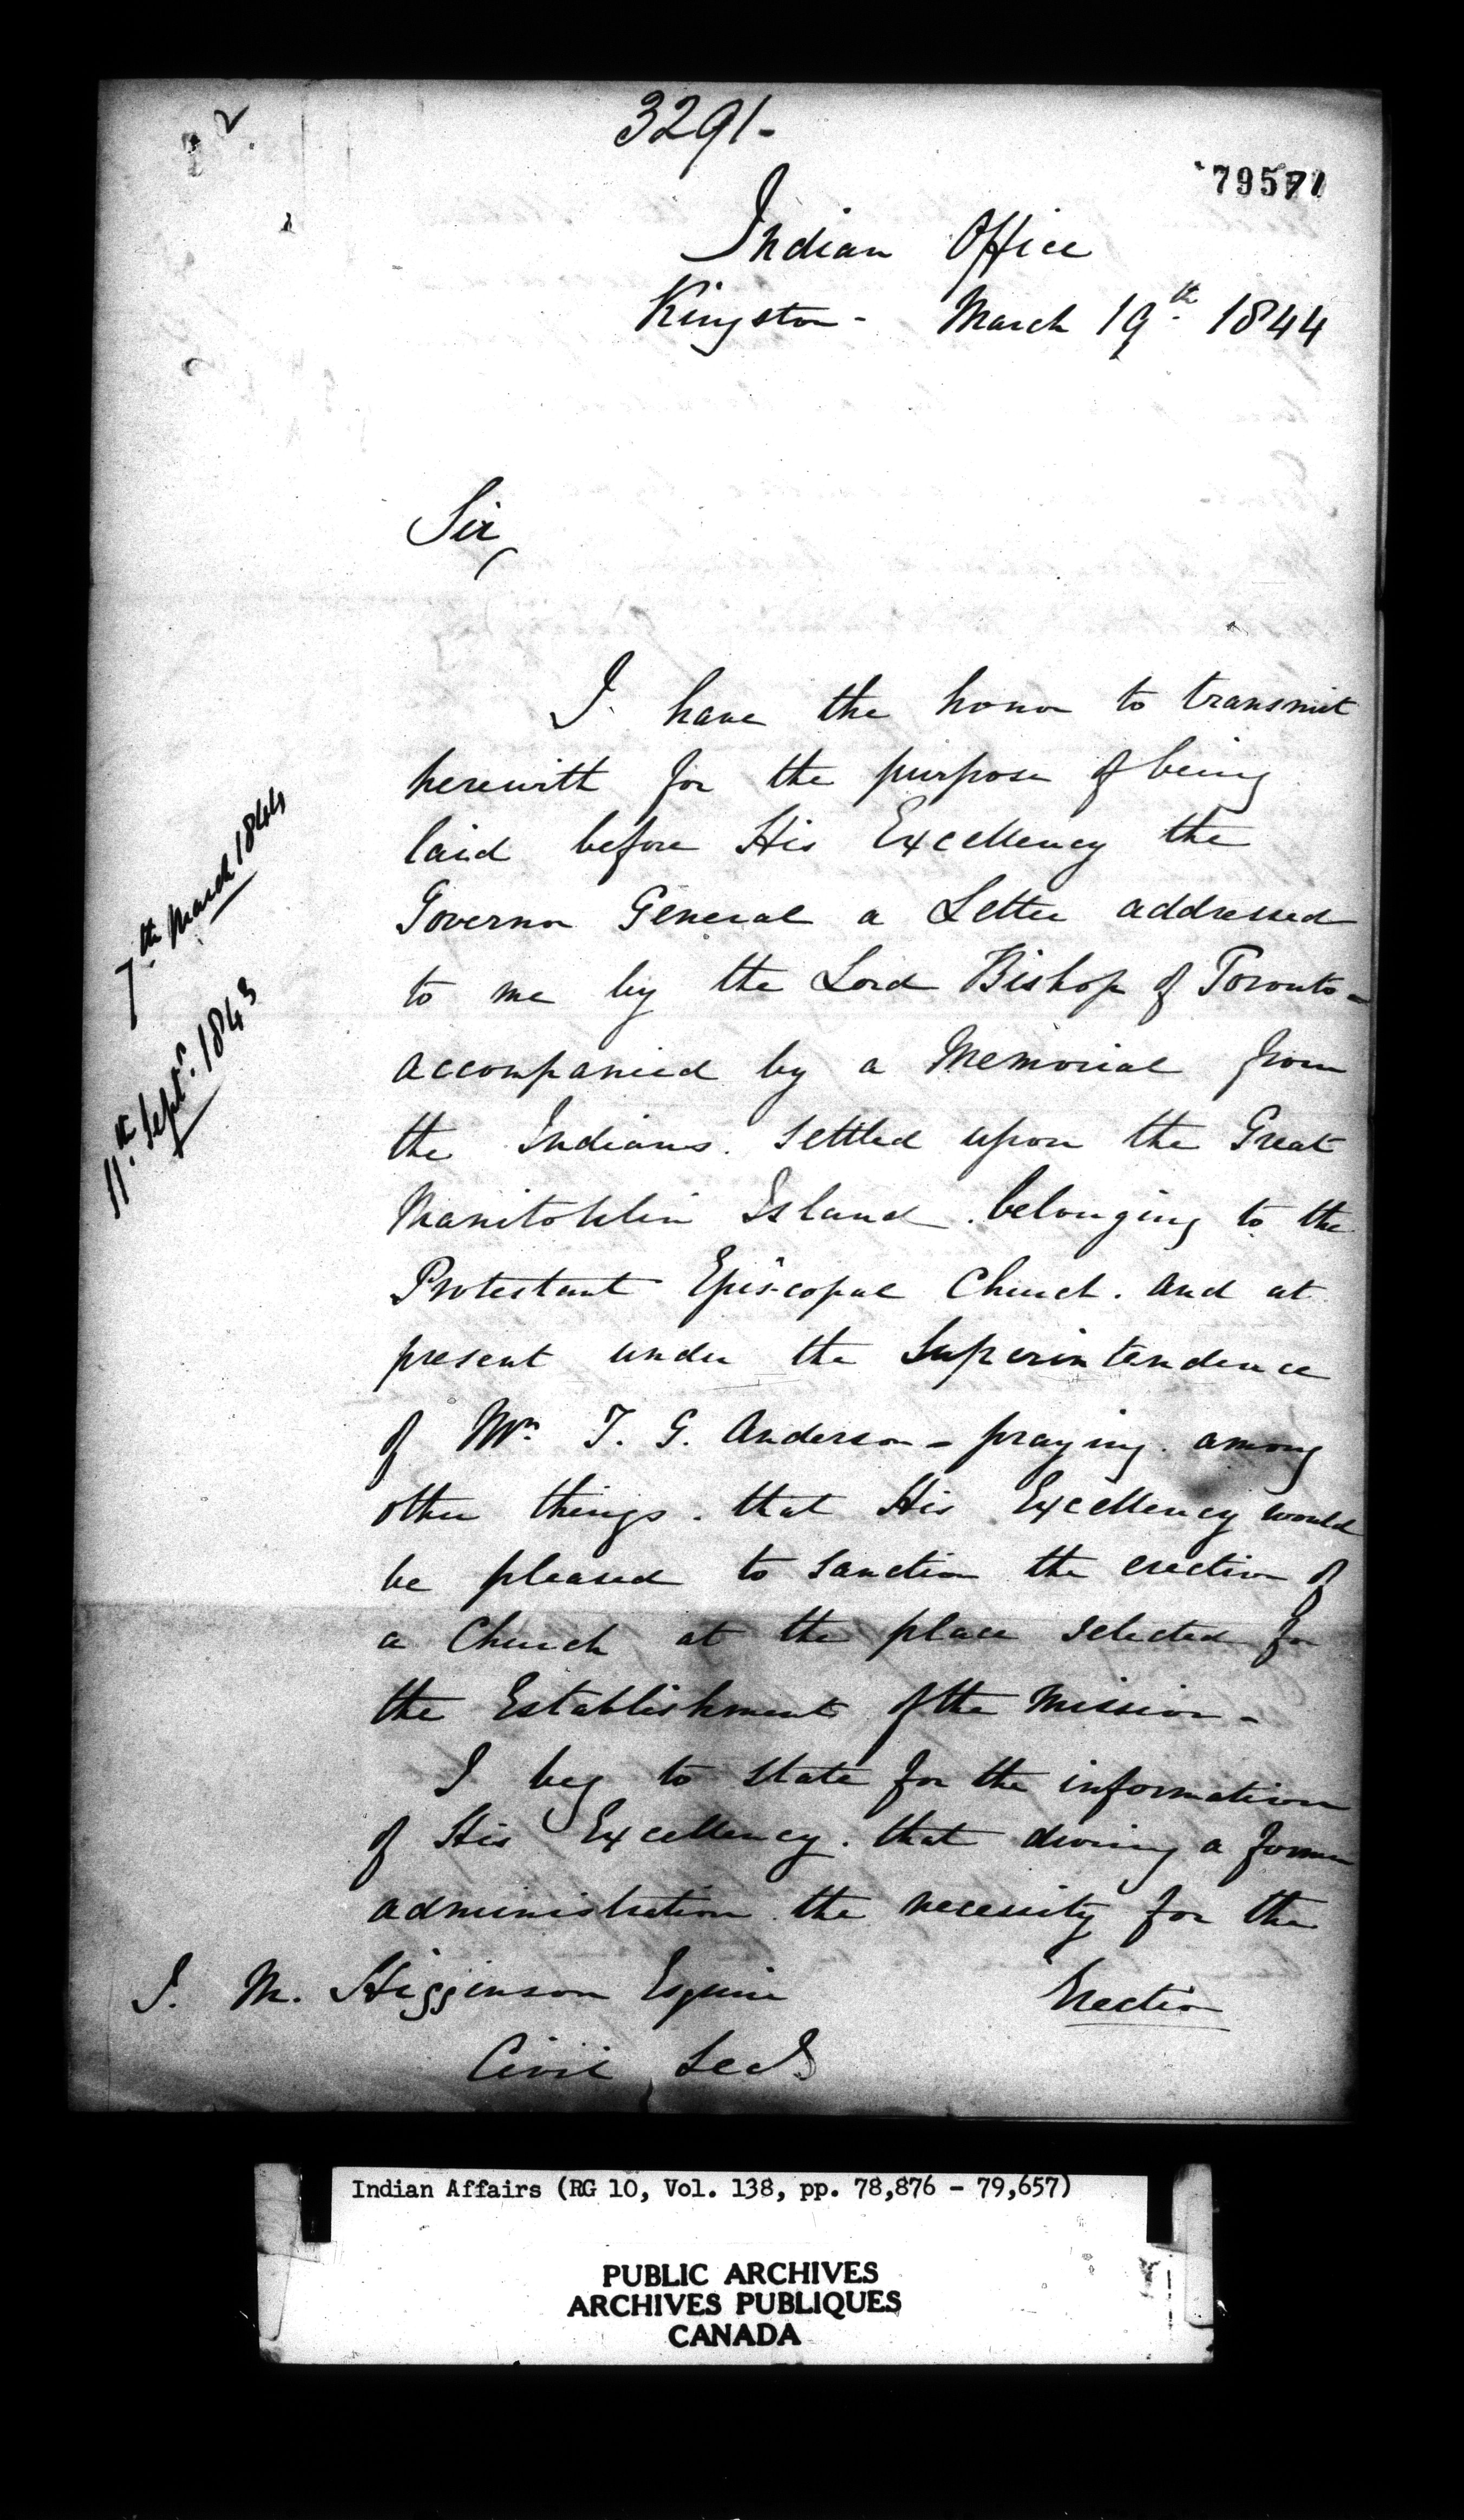 3291-
79571
Indian Office
Kingston - March 19th. 1844
Sir,
I have the honor to transmit
herewith for the purpose of being
laid before His Excellency the
Governor General a Letter addressed
7th. March 1844
to me by the Lord Bishop of Toronto -
11th. Septr. 1843
accompanied by a Memorial from
the Indians. settled upon the Great
Manitoulin Island. belonging to the
Protestant Episcopal Church. and at
present under the Superintendence
of Mr. T. G. Anderson - praying. among
other things. that His Excellency would
be pleased to sanction the erection of
a Church at the place selected for
the Establishment of the Mission -
I beg to state for the information
of His Excellency. that during a former
administration the necessity for the
Erection
J. M. Higginson Esquire
Civil Secy
Indian Affairs (RG 10, Vol. 138, pp. 78,876 - 79,657)
PUBLIC ARCHIVES
ARCHIVES PUBLIQUES
CANADA